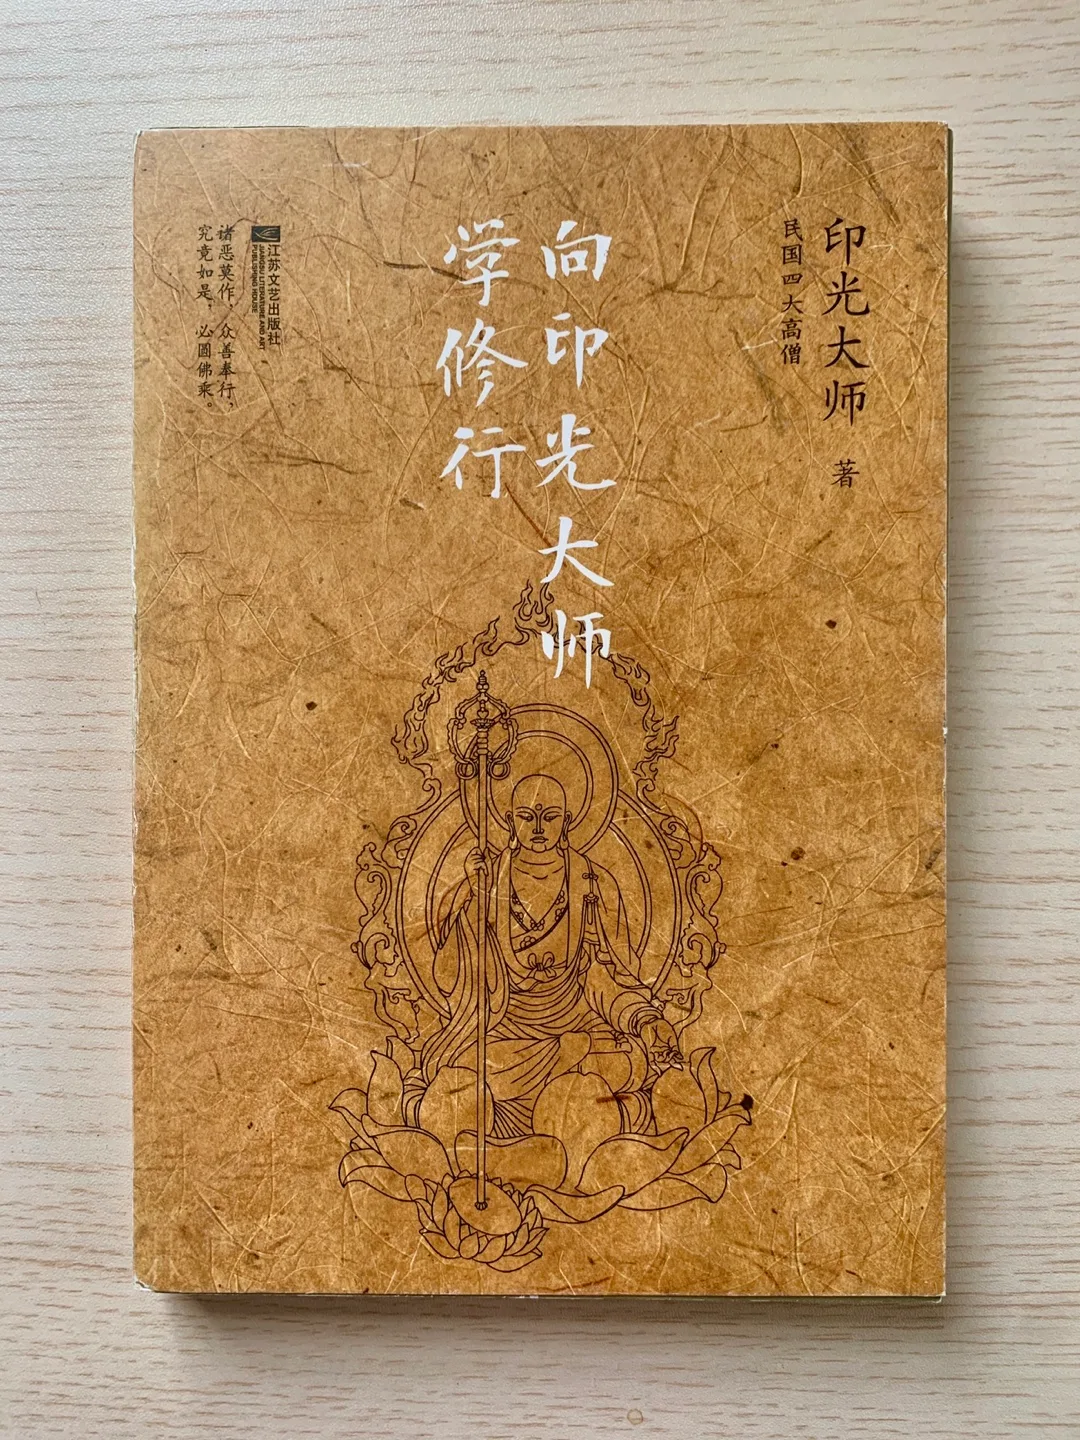 印光大师 著
民国四大高僧
向印光大师
学修行
江苏文艺出版社
JIANGSU LITERATURE AND ART
PUBLISHING HOUSE
诸恶莫作，众善奉行，
究竟如是，必圆佛乘。